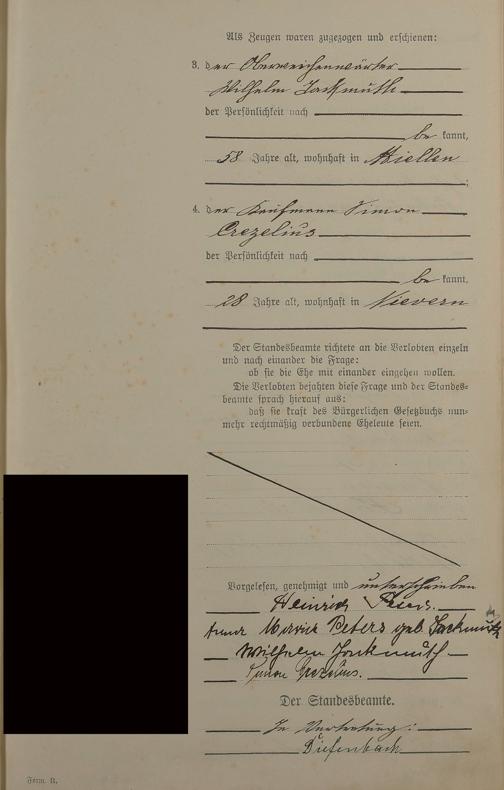 Als Zeugen waren zugezogen und erschienen:
3. der Oberweichenwärter
Wilhelm Jackmuth
der Persönlichkeit nach
be kannt,
58 Jahre alt, wohnhaft in Miellen
;
4. der Kaufmann Simon
Crezelius
der Persönlichkeit nach
be kannt,
28 Jahre alt, wohnhaft in Nievern
Der Standesbeamte richtete an die Verlobten einzeln
und nach einander die Frage:
ob sie die Ehe mit einander eingehen wollen.
Die Verlobten bejahten diese Frage und der Standes-
beamte sprach hierauf aus:
daß sie kraft des Bürgerlichen Gesetzbuchs nun-
mehr rechtmäßig verbundene Eheleute seien.
Vorgelesen, genehmigt und unterschrieben
Heinrich Peters.
Anna Maria Peters geb Jackmuth
Wilhelm Jackmuth
Simon Crezelius.
Der Standesbeamte.
In Vertretung:
Diefenbach
Form. B.